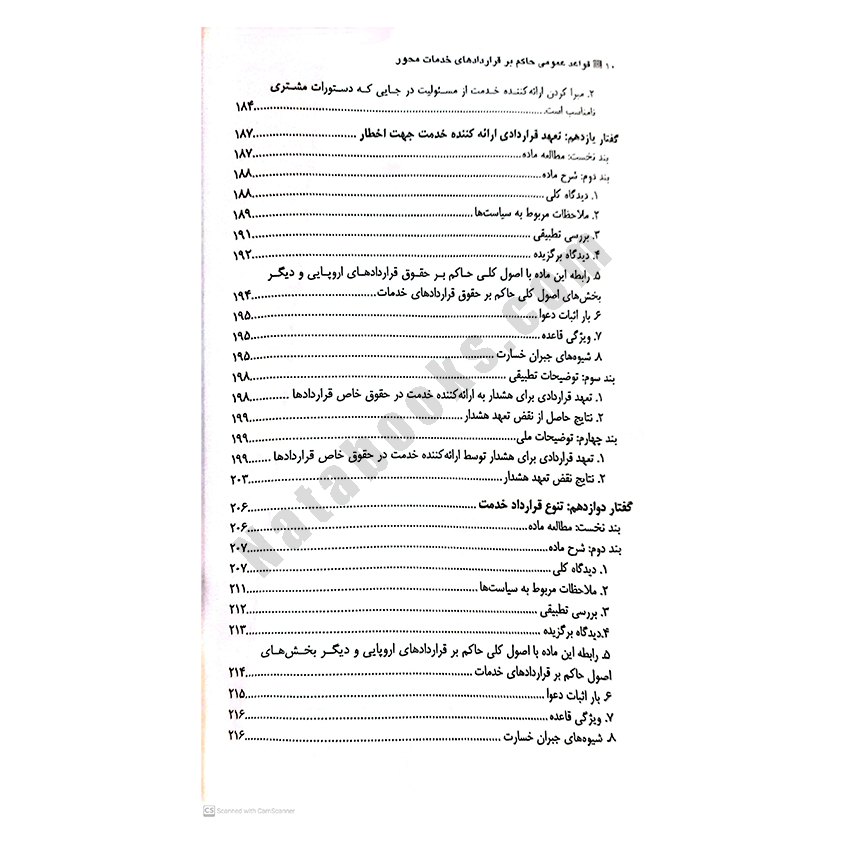 ۱۰ قواعد عمومی حاکم بر قراردادهای خدمات محور
۲. مبرا کردن ارائه‌کننده خدمت از مسئولیت در جایی که دستورات مشتری
نامناسب است. ۱۸۴
گفتار یازدهم: تعهد قراردادی ارائه کننده خدمت جهت اخطار ۱۸۷
بند نخست: مطالعه ماده ۱۸۷
بند دوم: شرح ماده ۱۸۸
۱. دیدگاه کلی ۱۸۸
۲. ملاحظات مربوط به سیاست‌ها ۱۸۹
۳. بررسی تطبیقی ۱۹۱
۴. دیدگاه برگزیده ۱۹۲
۵. رابطه این ماده با اصول کلی حاکم بر حقوق قراردادهای اروپایی و دیگر
بخش‌های اصول کلی حاکم بر حقوق قراردادهای خدمات ۱۹۴
۶. بار اثبات دعوا ۱۹۵
۷. ویژگی قاعده ۱۹۵
۸. شیوه‌های جبران خسارت ۱۹۵
بند سوم: توضیحات تطبیقی ۱۹۸
۱. تعهد قراردادی برای هشدار به ارائه‌کننده خدمت در حقوق خاص قراردادها ۱۹۸
۲. نتایج حاصل از نقض تعهد هشدار ۱۹۹
بند چهارم: توضیحات ملی ۱۹۹
۱. تعهد قراردادی برای هشدار توسط ارائه‌کننده خدمت در حقوق خاص قراردادها ۱۹۹
۲. نتایج نقض تعهد هشدار ۲۰۳
گفتار دوازدهم: تنوع قرارداد خدمت ۲۰۶
بند نخست: مطالعه ماده ۲۰۶
بند دوم: شرح ماده ۲۰۷
۱. دیدگاه کلی ۲۰۷
۲. ملاحظات مربوط به سیاست‌ها ۲۱۱
۳. بررسی تطبیقی ۲۱۲
۴.دیدگاه برگزیده ۲۱۳
۵. رابطه این ماده با اصول کلی حاکم بر قراردادهای اروپایی و دیگر بخش‌های
اصول حاکم بر قراردادهای خدمات ۲۱۴
۶. بار اثبات دعوا ۲۱۵
۷. ویژگی قاعده ۲۱۶
۸. شیوه‌های جبران خسارت ۲۱۶
Natabooks.com
CS Scanned with CamScanner